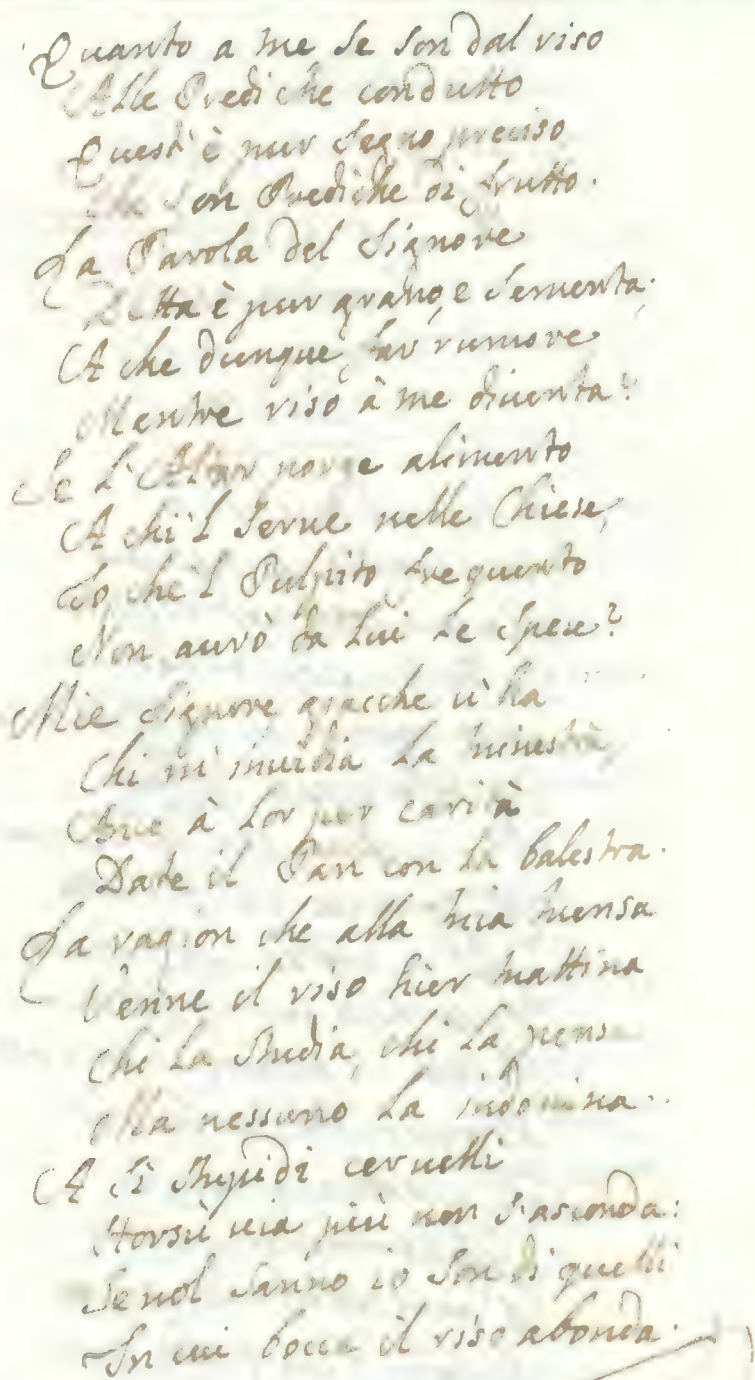 Quanto a me se son dal riso
Alle Prediche condutto
Quest' è pur segno preciso
Che son Prediche di frutto.
La Parola del Signore
Detta è pur grano, e sementa,
A che dunque far rumore
Mentre riso à me diuenta?
Se l'Altar porge alimento
A chi'l serue nelle Chiese,
Io che'l Pulpito frequento
Non aurò da lui le spese?
Mie Signore giacche u'ha
Chi m'inuidia la minestra,
à lor per carità
Date il Pan con la balestra.
La ragion che alla mia mensa
Venne il riso hier mattina
Chi la studia, chi la pensa
Ma nessuno la indouina.
A sì stupidi ceruelli
Horsù uia più non s'asconda:
Se nol sanno io son di quelli
In cui bocca il riso abonda.